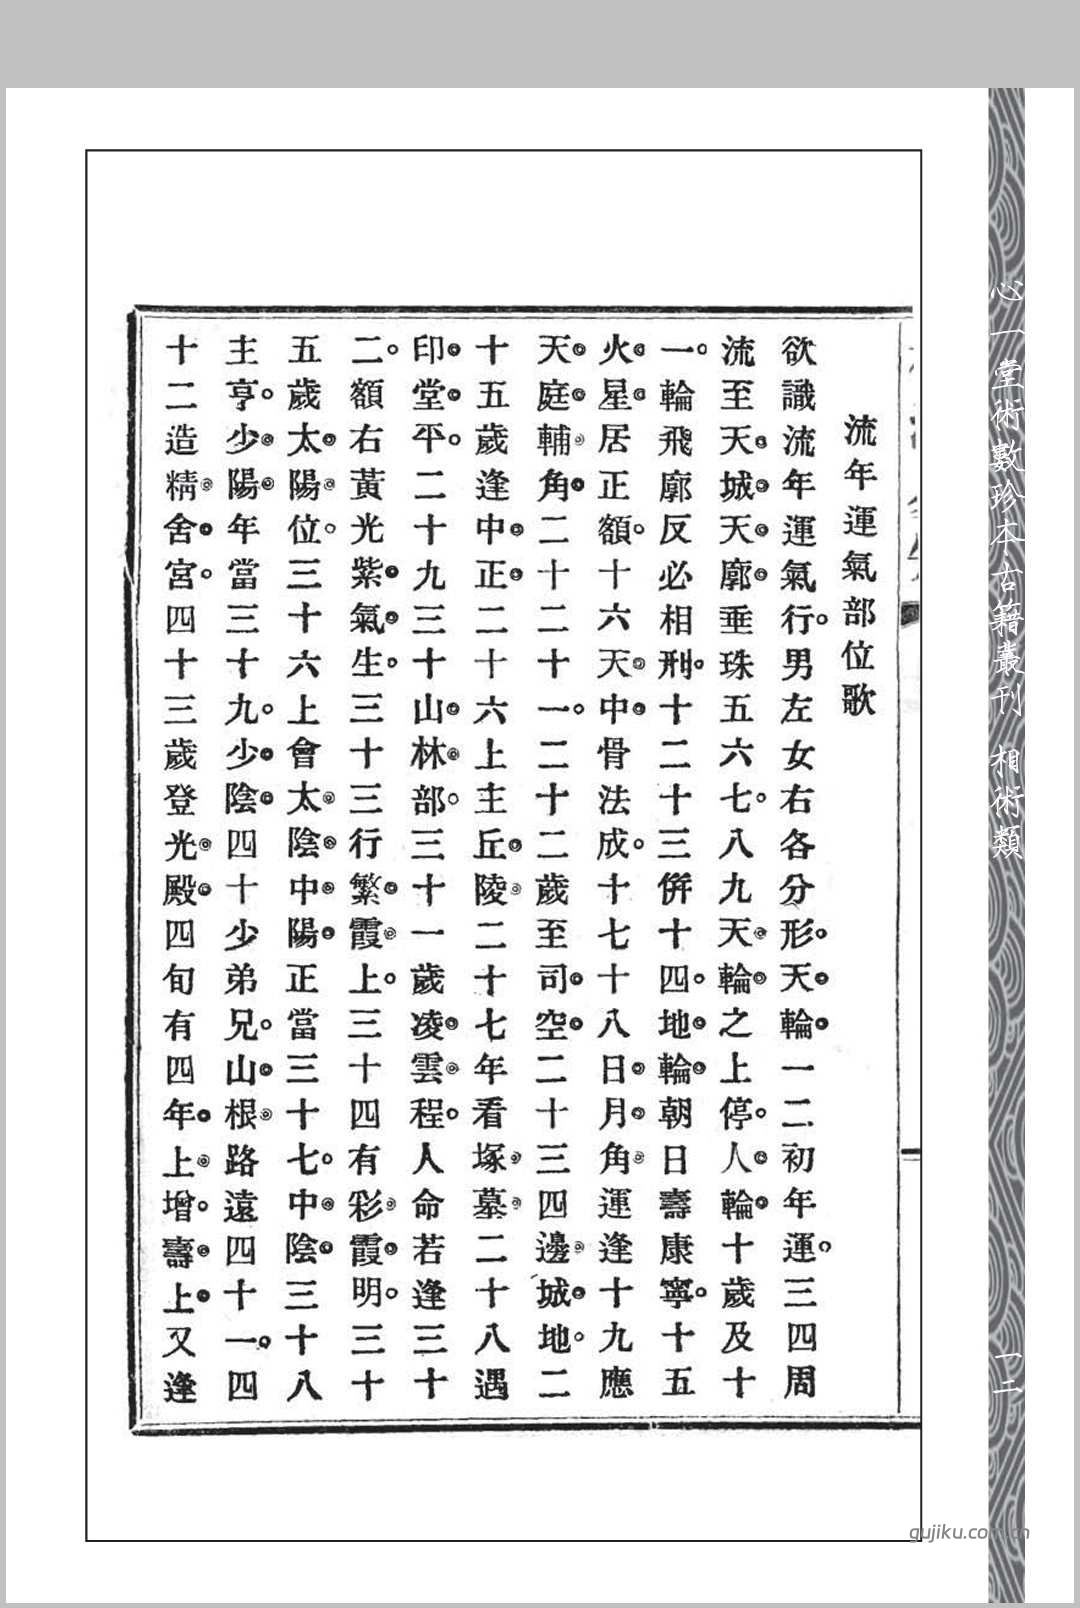 流年運氣部位歌
欲識流年運氣行。男左女右各分形。天輪一二初年運。三四周
流至天城天廓垂珠五六七。八九天輪之上停。人輪十歲及十
一。輪飛廓反必相刑。十二十三併十四。地輪朝日壽康寧。十五
火星居正額。十六天中骨法成。十七十八日月角運逢十九應
天庭輔角二十二十一。二十二歲至司空二十三四邊城地。二
十五歲逢中正二十六上主丘陵二十七年看塚墓二十八遇
印堂平。二十九三十山林部。三十一歲凌雲程。人命若逢三十
二。額右黃光紫氣生。三十三行繁霞上。三十四有彩霞明。三十
五歲太陽位。三十六上會太陰中陽正當三十七。中陰三十八
主亨。少陽年當三十九。少陰四十少弟兄。山根路遠四十一。四
十二造精舍宮。四十三歲登光殿四旬有四年上增。壽上又逢
心一堂術數珍本古籍叢刊 相術類
一二
gujiku.com.cn